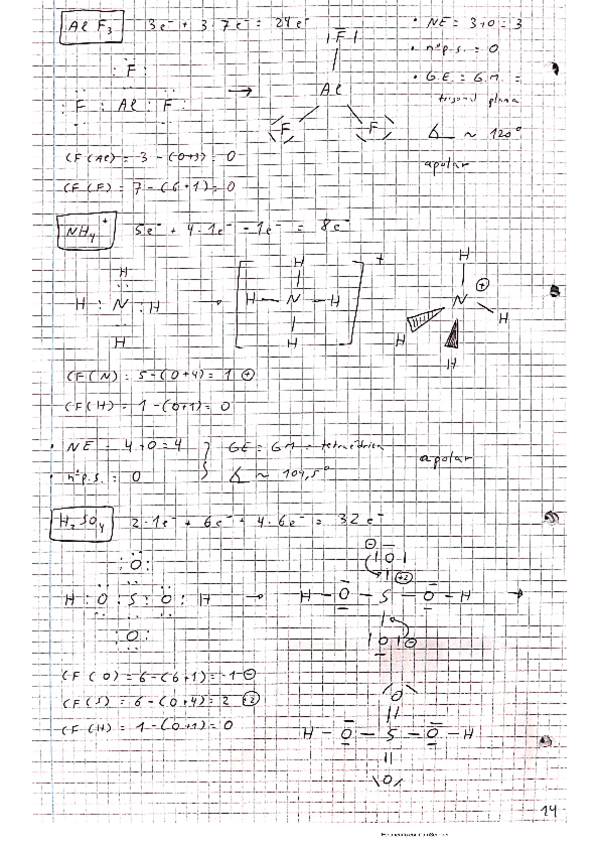 AlF₃ 3e⁻ + 3·7e⁻ = 24e⁻
• NE = 3+0 = 3
• nºp.s. = 0
• G.E. = G.M. =
trigonal plana
∡ ~ 120º
apolar
F
F : Al : F
→
|F|
Al
F F
CF(Al) = 3-(0+3) = 0
CF(F) = 7-(6+1) = 0
NH₄⁺ 5e⁻ + 4·1e⁻ - 1e⁻ = 8e⁻
H
H : N : H
H
→
H
H - N - H
H
+
H
N ⊕
H H
H
CF(N) = 5-(0+4) = 1 ⊕
CF(H) = 1-(0+1) = 0
• NE = 4+0 = 4
• nºp.s. = 0
GE = GM = tetraédrica
∡ ~ 104,5º
apolar
H₂SO₄ 2·1e⁻ + 6e⁻ + 4·6e⁻ = 32e⁻
: O :
H : O : S : O : H
: O :
→
⊖ |O|
H - O - S - O - H
+2
|O| ⊖
→
CF(O) = 6-(6+1) = -1 ⊖
CF(S) = 6-(0+4) = 2 +2
CF(H) = 1-(0+1) = 0
O
H - O - S - O - H
O
14